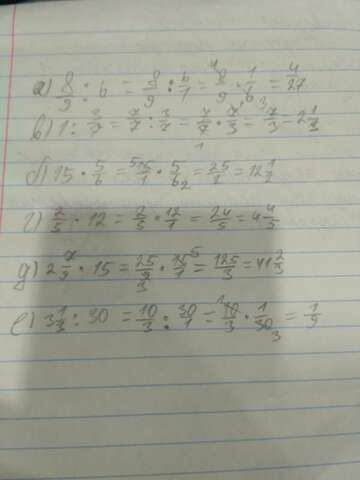 а) 8/9 : 6 = 8/9 : 6/1 = ⁴8/9 · 1/6 ₃ = 4/27
в) 1 : 3/7 = 7/7 : 3/7 = 7/7 · 7/3 = 7/3 = 2 1/3
б) 15 · 5/6 = ⁵15/1 · 5/6 ₂ = 25/2 = 12 1/2
г) 2/5 · 12 = 2/5 · 12/1 = 24/5 = 4 4/5
д) 2 7/9 · 15 = 25/9 ₃ · 15/1 ⁵ = 125/3 = 41 2/3
е) 3 1/3 : 30 = 10/3 : 30/1 = ¹10/3 · 1/30 ₃ = 1/9